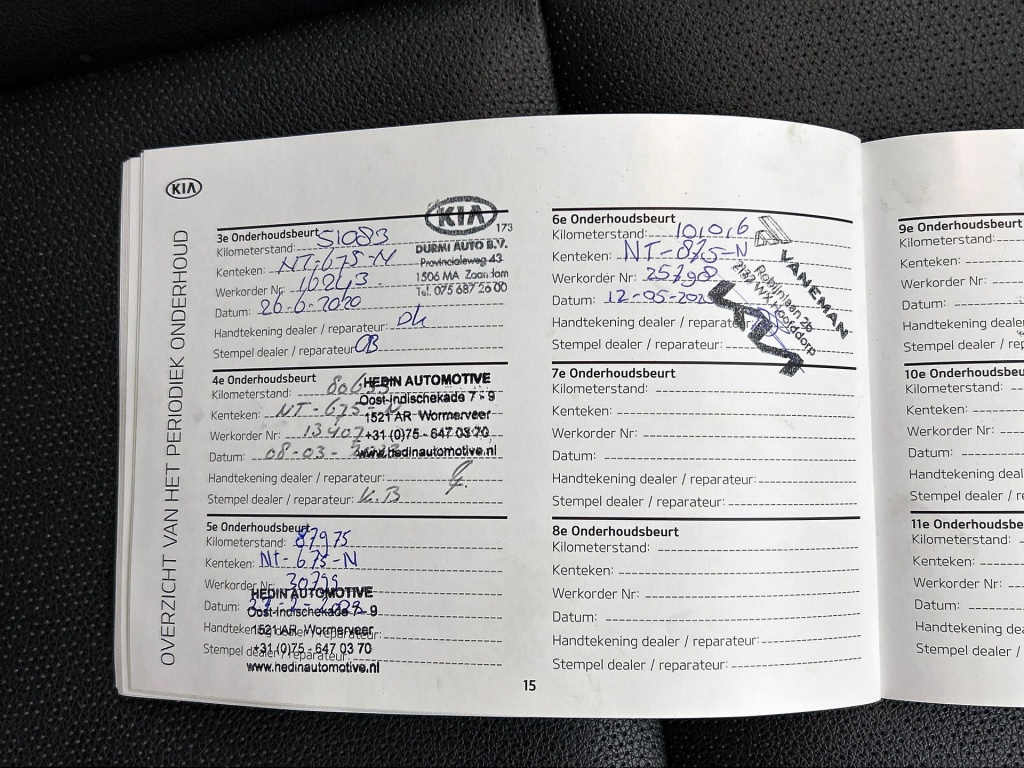 KIA
OVERZICHT VAN HET PERIODIEK ONDERHOUD
3e Onderhoudsbeurt
Kilometerstand: 51083
Kenteken: NT-675-N
Werkorder Nr: 10243
Datum: 26-6-2020
Handtekening dealer / reparateur:
Stempel dealer / reparateur:
KIA
173
DURMI AUTO B.V.
Provincialeweg 43
1506 MA Zaandam
Tel. 075 687 26 00
4e Onderhoudsbeurt
Kilometerstand:
Kenteken: NT-675-N
Werkorder Nr: 13407
Datum: 08-03-
Handtekening dealer / reparateur:
Stempel dealer / reparateur: K.B
HEDIN AUTOMOTIVE
Oost-indischekade 7 - 9
1521 AR Wormerveer
+31 (0)75 - 647 03 70
www.hedinautomotive.nl
5e Onderhoudsbeurt
Kilometerstand: 87975
Kenteken: NT-675-N
Werkorder Nr:
Datum:
Handtekening dealer / reparateur:
Stempel dealer / reparateur:
HEDIN AUTOMOTIVE
Oost-indischekade 7 - 9
1521 AR Wormerveer
+31 (0)75 - 647 03 70
www.hedinautomotive.nl
6e Onderhoudsbeurt
Kilometerstand: 101016
Kenteken: NT-875-N
Werkorder Nr: 25798
Datum: 12-05-202
Handtekening dealer / reparateur:
Stempel dealer / reparateur:
VANEMAN
Robijnlaan 2b
2132 WX Hoofddorp
KIA
7e Onderhoudsbeurt
Kilometerstand:
Kenteken:
Werkorder Nr:
Datum:
Handtekening dealer / reparateur:
Stempel dealer / reparateur:
8e Onderhoudsbeurt
Kilometerstand:
Kenteken:
Werkorder Nr:
Datum:
Handtekening dealer / reparateur:
Stempel dealer / reparateur:
15
9e Onderhoudsbeurt
Kilometerstand:
Kenteken:
Werkorder Nr:
Datum:
Handtekening dealer
Stempel dealer / rep
10e Onderhoudsbeu
Kilometerstand:
Kenteken:
Werkorder Nr:
Datum:
Handtekening dealer /
Stempel dealer / repa
11e Onderhoudsbe
Kilometerstand:
Kenteken:
Werkorder Nr:
Datum:
Handtekening dealer
Stempel dealer /